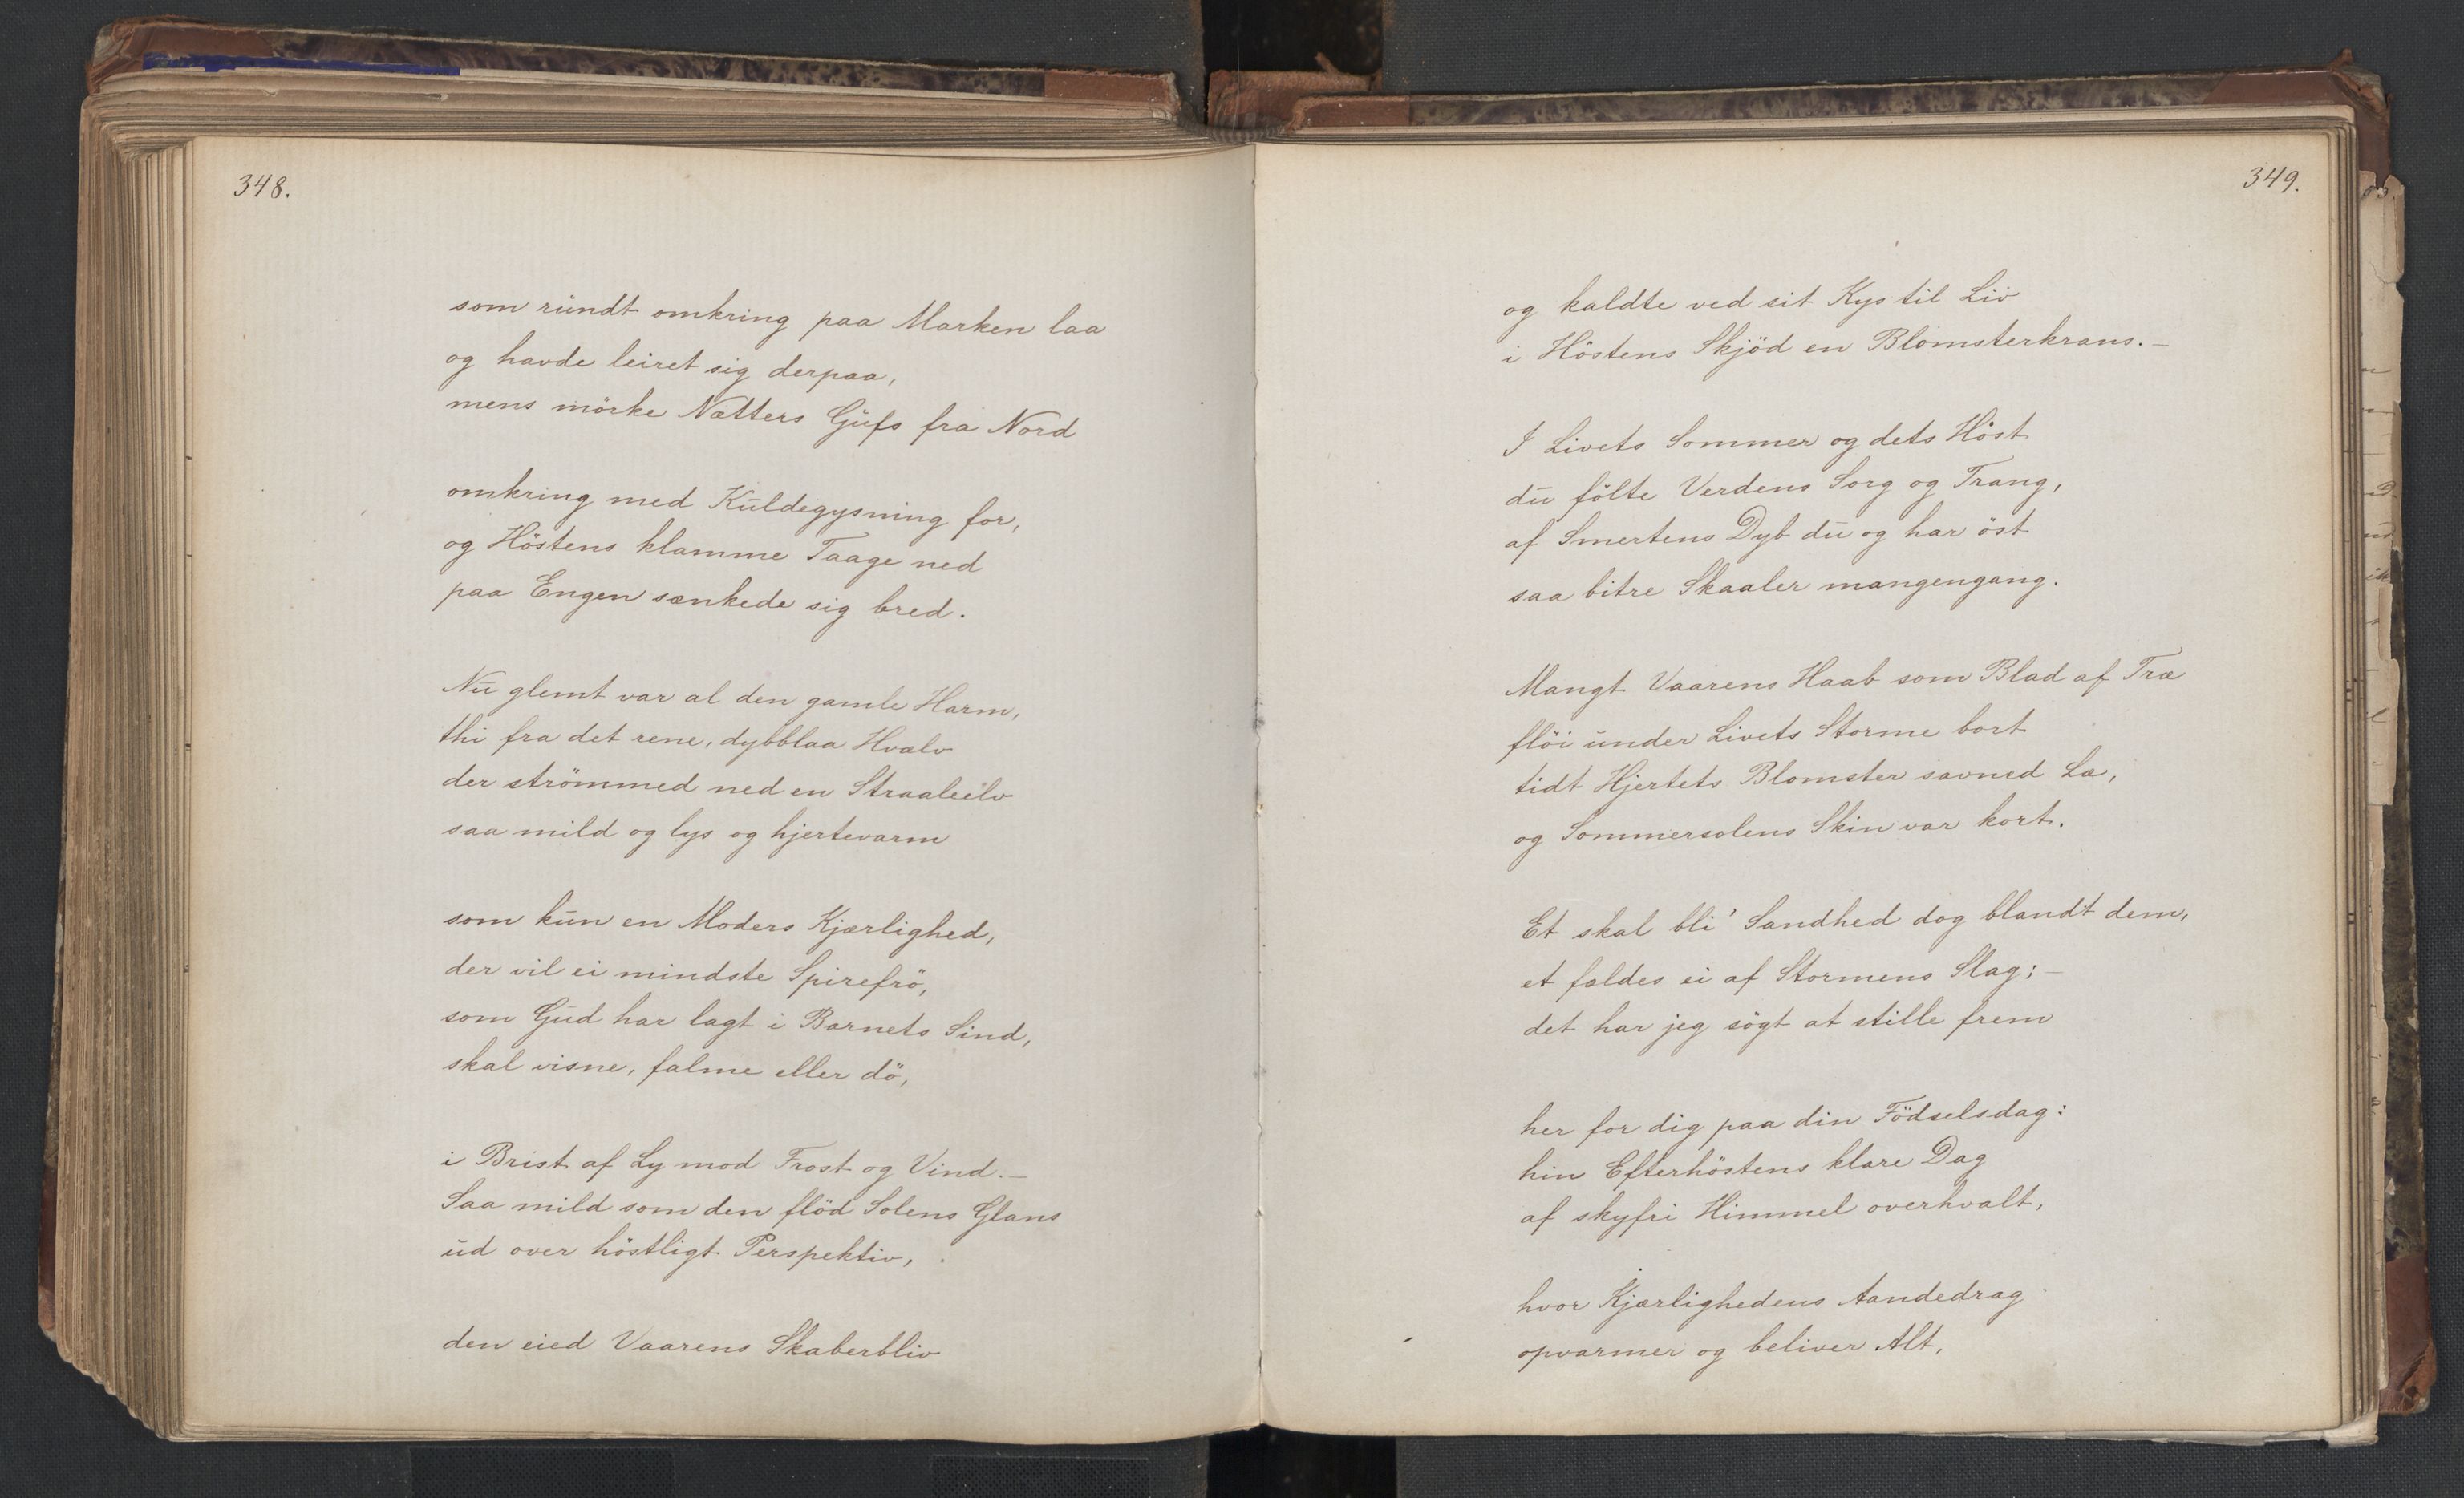 348.
som rundt omkring paa Marken laa
og havde leiret sig derpaa,
mens mörke Nætters Gufs fra Nord
omkring med Kuldegysning for,
og Höstens klamme Taage ned
paa Engen sænkede sig bred.
Nu glemt var al den gamle Harm,
thi fra det rene, dybblaa Hvælv
der strömmed ned en Straaleelv
saa mild og lys og hjertevarm
som kun en Moders Kjærlighed,
der vil ei mindste Spirefrö,
som Gud har lagt i Barnets Sind,
skal visne, falme eller dö,
i Brist af Ly mod Frost og Vind. –
Saa mild som den flöd Solens Glans
ud over höstligt Perspektiv,
den eied Vaarens Skaberbliv
349.
og kaldte ved sit Kys til Liv
i Höstens Skjöd en Blomsterkrans. –
I Livets Sommer og dets Höst
du fölte Verdens Sorg og Trang,
af Smertens Dyb du og har öst
saa bitre Skaaler mangengang.
Mangt Vaarens Haab som Blad af Træ
flöi under Livets Storme bort
tidt Hjertets Blomster savned Læ,
og Sommersolens Skin var kort.
Et skal bli' Sandhed dog blandt dem,
et fældes ei af Stormens Slag; –
det har jeg sögt at stille frem
her for dig paa din Födselsdag:
hin Efterhöstens klare Dag
af skyfri Himmel overhvælt,
hvor Kjærlighedens Aandedrag
opvarmer og beliver Alt,